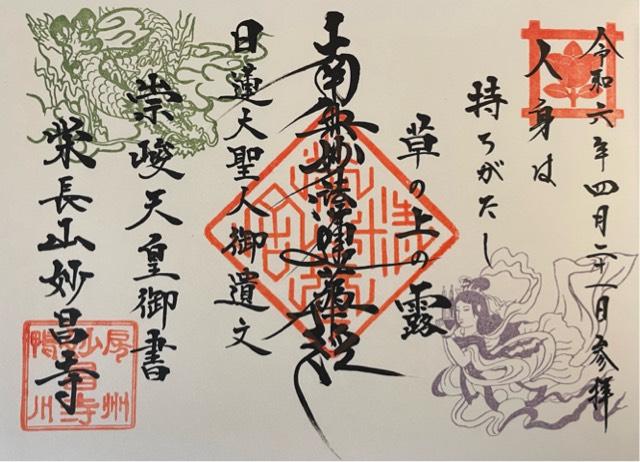 令和六年四月二十一日参拝
人身は
持ちがたし
草の上の露
南無妙法蓮華経
日蓮大聖人御遺文
崇峻天皇御書
栄長山妙昌寺
房州
妙昌寺
鴨川